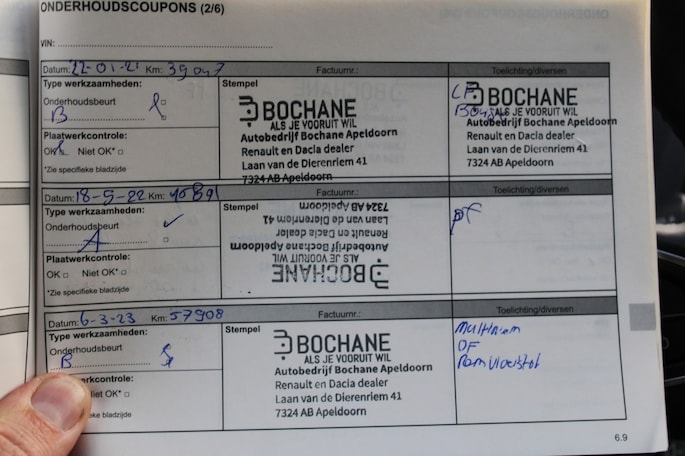 ONDERHOUDSCOUPONS (2/6)
VIN:
Datum: 22-01-21 Km: 39047 Factuurnr.: Toelichting/diversen
Type werkzaamheden:
Onderhoudsbeurt
B
Plaatwerkcontrole:
OK Niet OK*
*Zie specifieke bladzijde
Stempel
BOCHANE
ALS JE VOORUIT WIL
Autobedrijf Bochane Apeldoorn
Renault en Dacia dealer
Laan van de Dierenriem 41
7324 AB Apeldoorn
BOCHANE
ALS JE VOORUIT WIL
Autobedrijf Bochane Apeldoorn
Renault en Dacia dealer
Laan van de Dierenriem 41
7324 AB Apeldoorn
Datum: 18-5-22 Km: Factuurnr.: Toelichting/diversen
Type werkzaamheden:
Onderhoudsbeurt
A
Plaatwerkcontrole:
OK Niet OK*
*Zie specifieke bladzijde
Stempel
BOCHANE
ALS JE VOORUIT WIL
Autobedrijf Bochane Apeldoorn
Renault en Dacia dealer
Laan van de Dierenriem 41
7324 AB Apeldoorn
Datum: 6-3-23 Km: 57908 Factuurnr.: Toelichting/diversen
Type werkzaamheden:
Onderhoudsbeurt
B
erkcontrole:
iet OK*
e specifieke bladzijde
Stempel
BOCHANE
ALS JE VOORUIT WIL
Autobedrijf Bochane Apeldoorn
Renault en Dacia dealer
Laan van de Dierenriem 41
7324 AB Apeldoorn
OF
Remvloeistof
6.9